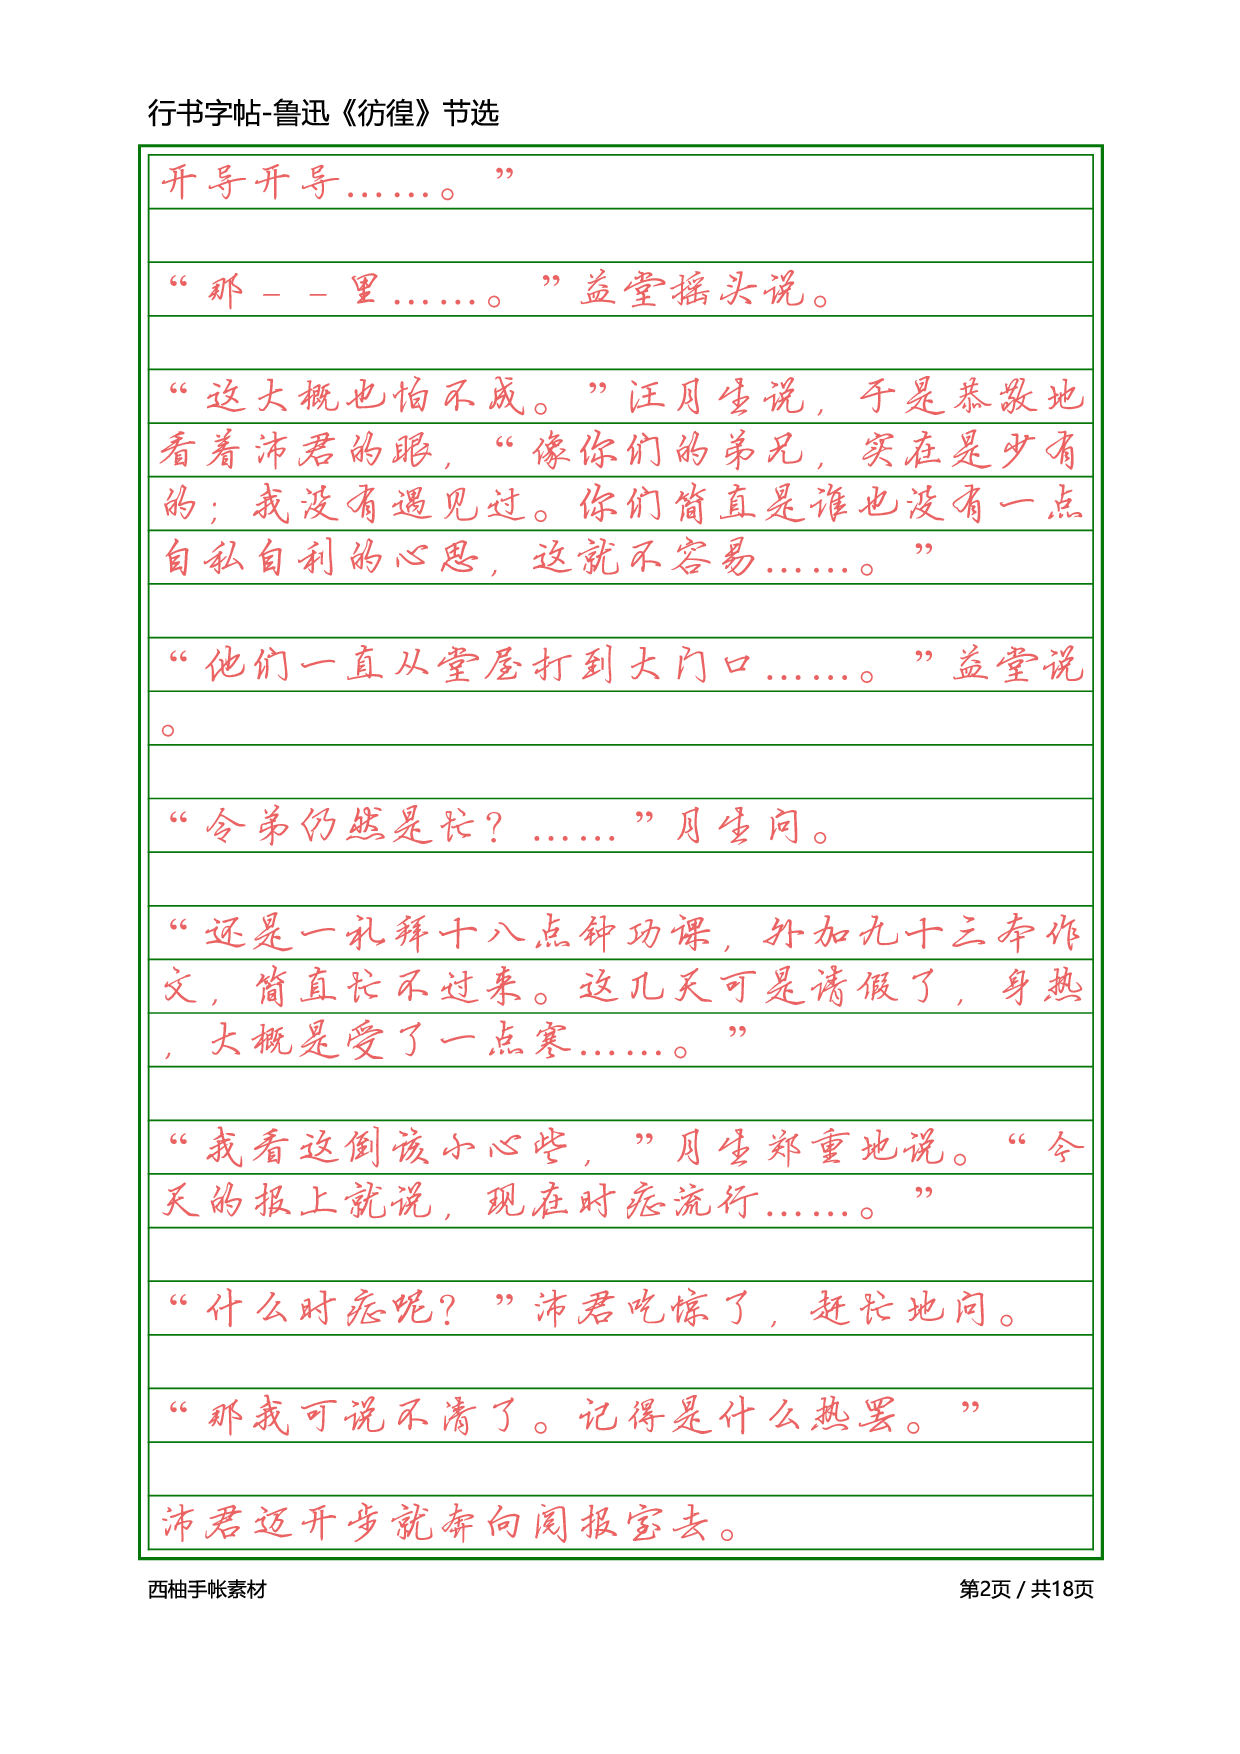 行书字帖-鲁迅《彷徨》节选
开导开导……。”
“那--里……。”益堂摇头说。
“这大概也怕不成。”汪月生说，于是恭敬地
看着沛君的眼，“像你们的弟兄，实在是少有
的；我没有遇见过。你们简直是谁也没有一点
自私自利的心思，这就不容易……。”
“他们一直从堂屋打到大门口……。”益堂说
。
“令弟仍然是忙？……”月生问。
“还是一礼拜十八点钟功课，外加九十三本作
文，简直忙不过来。这几天可是请假了，身热
，大概是受了一点寒……。”
“我看这倒该小心些，”月生郑重地说。“今
天的报上就说，现在时症流行……。”
“什么时症呢？”沛君吃惊了，赶忙地问。
“那我可说不清了。记得是什么热罢。”
沛君迈开步就奔向阅报室去。
西柚手帐素材
第2页 / 共18页